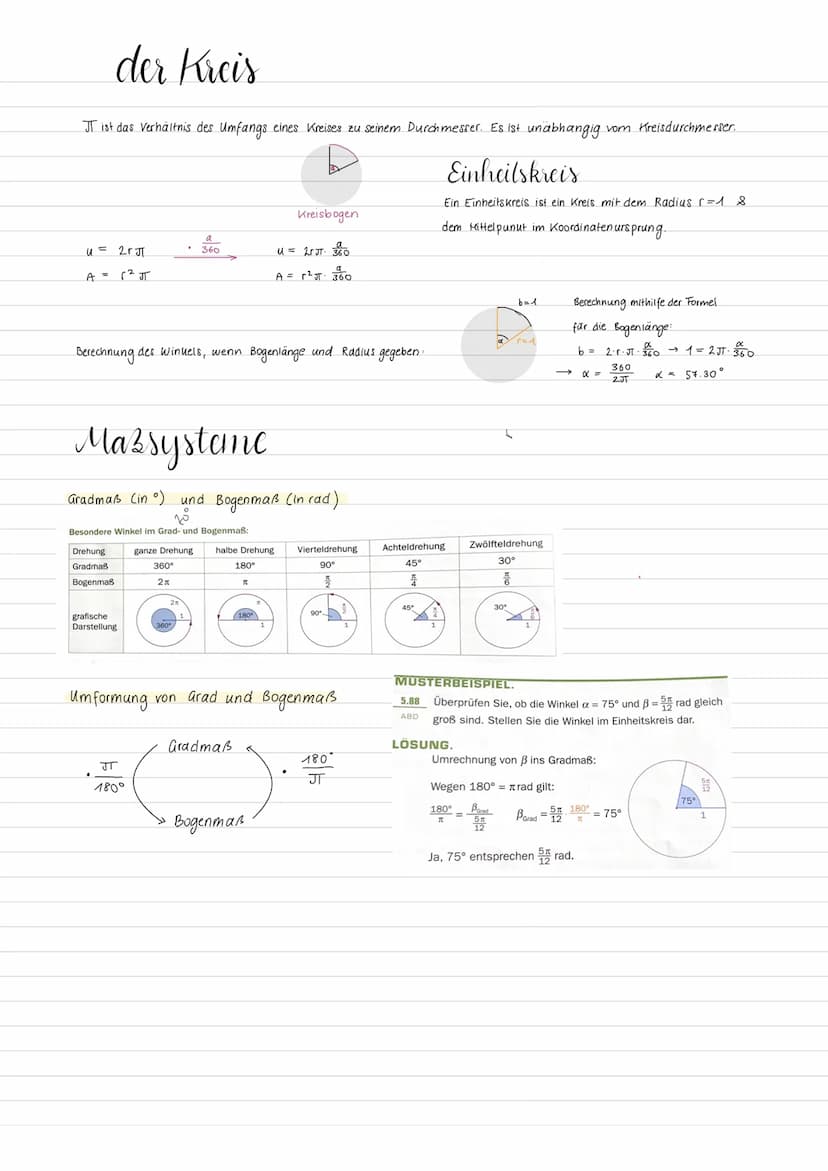 der Kreis
π ist das Verhältnis des Umfangs eines Kreises zu seinem Durchmesser. Es ist unabhängig vom Kreisdurchmesser.
a
Kreisbogen
Einheitskreis
Ein Einheitskreis ist ein Kreis mit dem Radius r=1 &
dem Mittelpunkt im Koordinatenursprung.
u = 2rπ · a/360 u = 2rπ · a/360
A = r²π A = r²π · a/360
b=1
α r=1
Berechnung mithilfe der Formel
für die Bogenlänge:
Berechnung des Winkels, wenn Bogenlänge und Radius gegeben:
b = 2·r·π·α/360 → 1 = 2π·α/360
→ α = 360/2π α ≈ 57.30°
Maßsysteme
Gradmaß (in °) und Bogenmaß (in rad)
Besondere Winkel im Grad- und Bogenmaß:
Drehung ganze Drehung halbe Drehung Vierteldrehung Achteldrehung Zwölfteldrehung
Gradmaß 360° 180° 90° 45° 30°
Bogenmaß 2π π π/2 π/4 π/6
grafische Darstellung
2π 1 360°
π 180° 1
90° π/2 1
45° π/4 1
30° π/6 1
Umformung von Grad und Bogenmaß
Gradmaß
· π/180°
· 180°/π
Bogenmaß
MUSTERBEISPIEL.
5.88 Überprüfen Sie, ob die Winkel α = 75° und β = 5π/12 rad gleich
ABD groß sind. Stellen Sie die Winkel im Einheitskreis dar.
LÖSUNG.
Umrechnung von β ins Gradmaß:
Wegen 180° = π rad gilt:
180°/π = βGrad/(5π/12) βGrad = 5π/12 · 180°/π = 75°
Ja, 75° entsprechen 5π/12 rad.
75° 5π/12 1